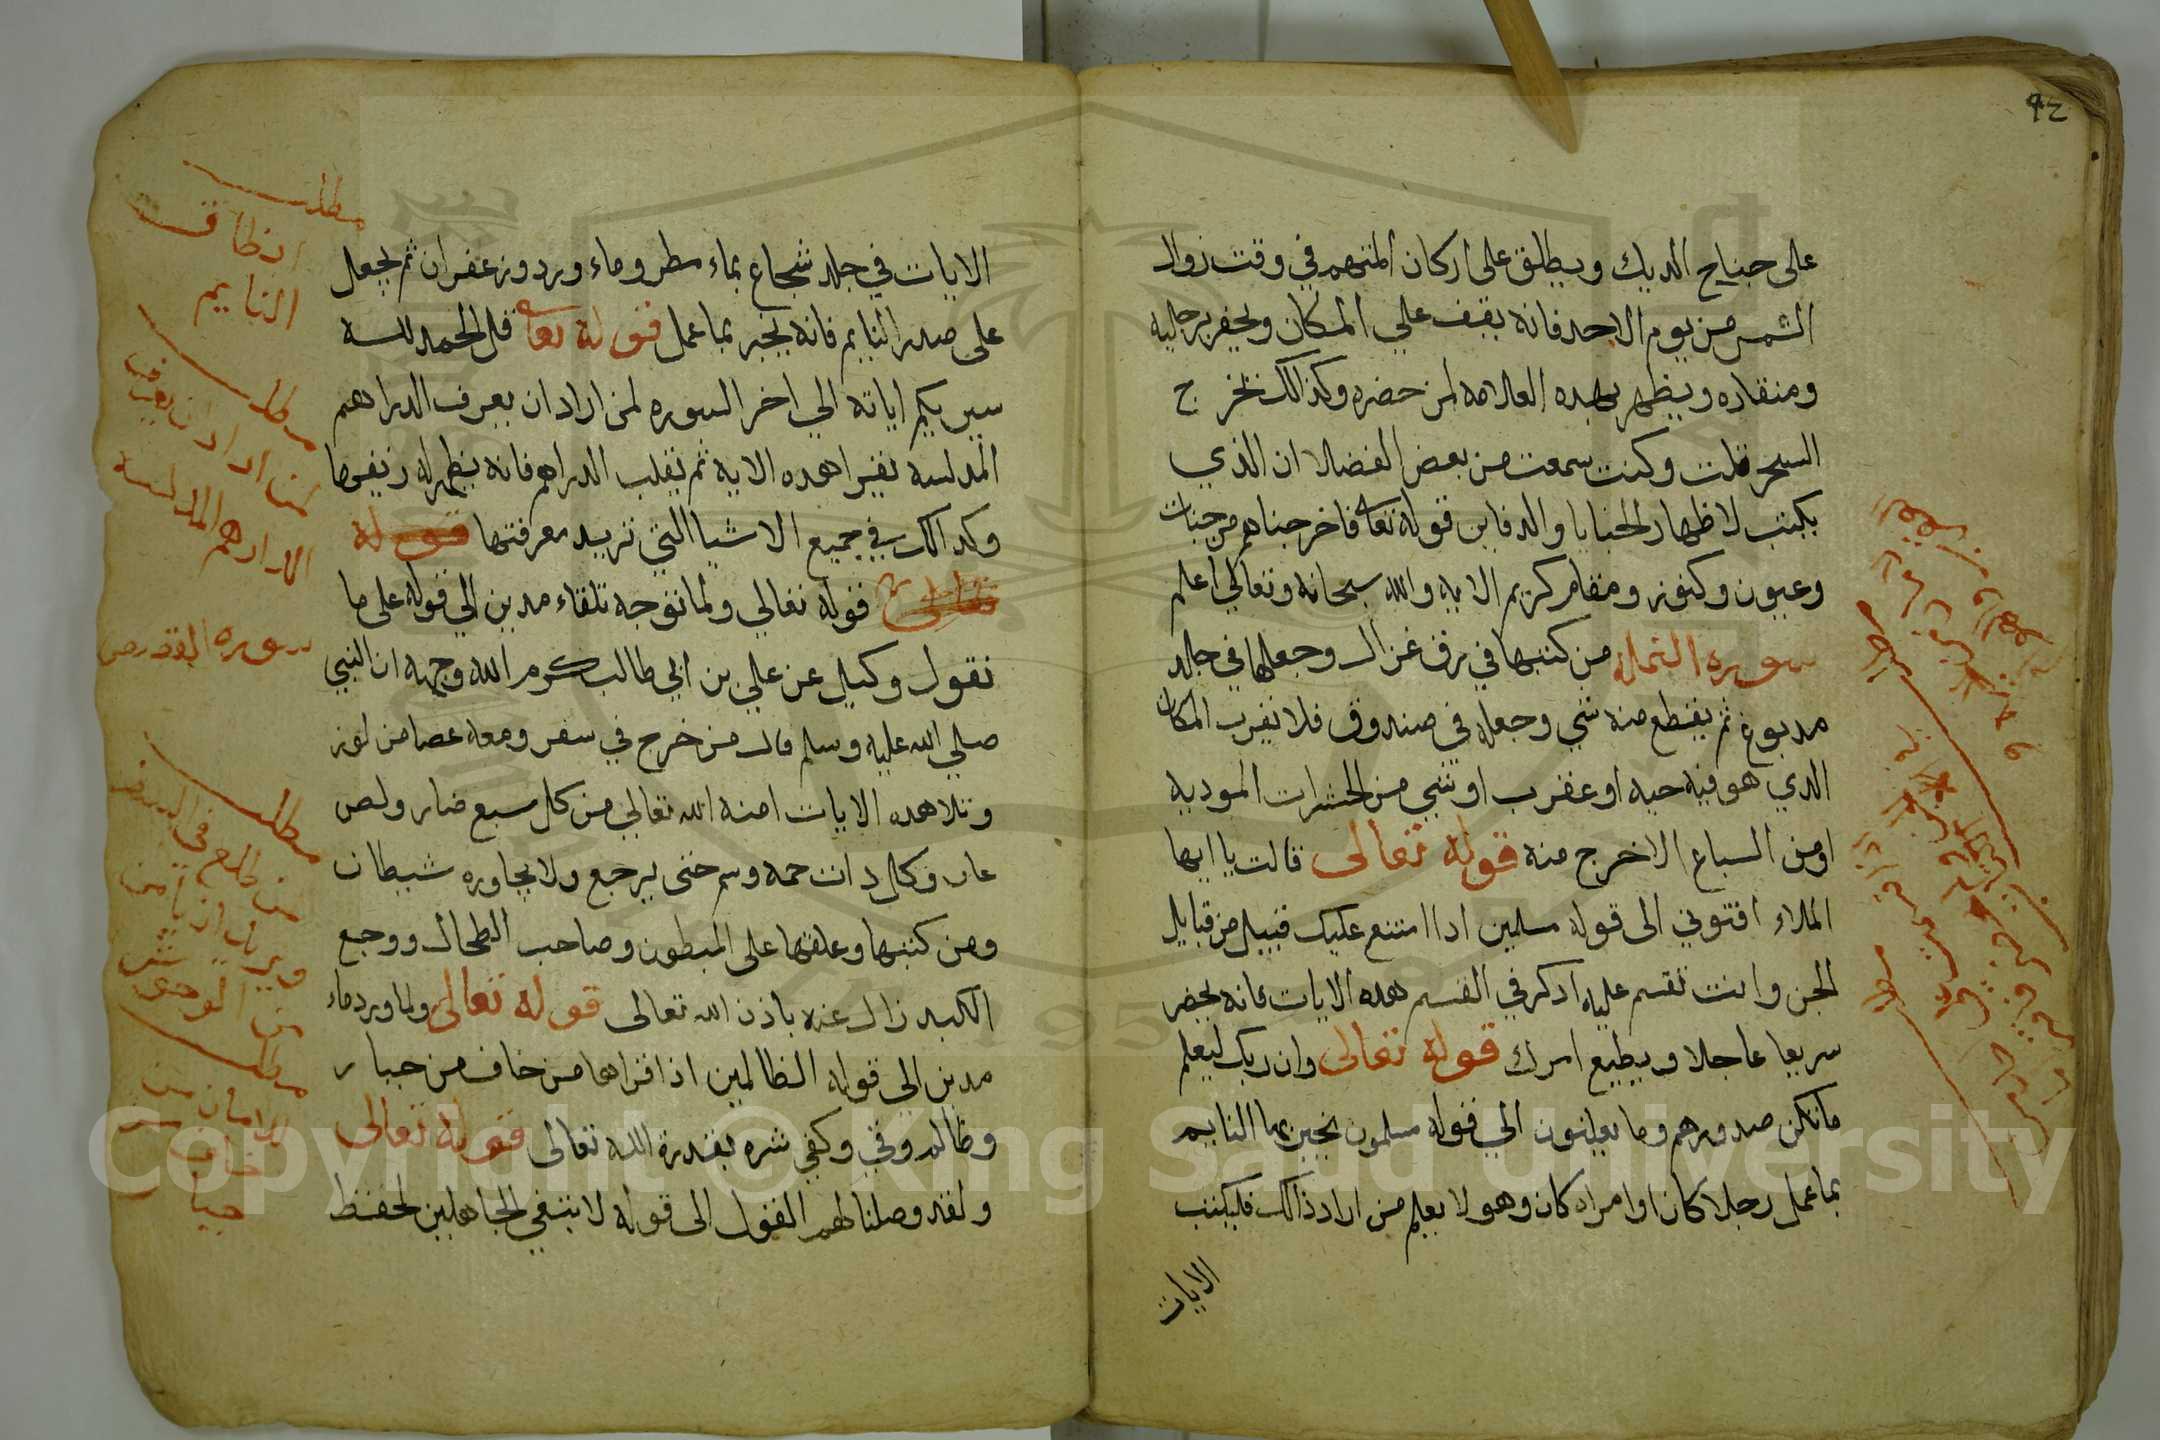 ٩٤
على جناح الديك ويطلق على اركان المتهم في وقت زوال
الشمس من يوم الاحد فانه يقف علي المكان ويحفر برجليه
ومنقاره ويظهر بهده العلامه لمن حضره وكذلك تخرج
السحر قلت وكنت سمعت من بعض الفضلا ان الذي
يكتب لاظهار الخبايا والدفاين قوله تعالى فاخرجناهم من جنات
وعيون وكنوز ومقام كريم الايه والله سبحانه وتعالي اعلم
سوره النمل من كتبها في رق غزال وجعلها في جلد
مدبوغ ثم يقطع منه شي وجعله في صندوق فلا تقرب المكان
الدي هو فيه حيه او عقرب او شي من الحشرات الموديه
او من السباع الا خرج منه قوله تعالى قالت يا ايها
الملاء افتوني الى قوله مسلمين ادا امتنع عليك قبيل من قبايل
الجن وانت تقسم عليه ادكر في القسم هده الايات فانه يحضر
سريعا عاجلا ويطيع امرك قوله تعالى وان ربك ليعلم
ما تكن صدورهم وما يعلنون الي قوله مسلمون يخبر بها النايم
بما عمل رجلا كان او امراه كان وهو لا يعلم من اراد ذالك فليكتب
الايات
الايات في جلد شجاع بماء مطر وماء ورد وزعفران ثم يجعل
على صدر النايم فانه يخبر بما عمل قوله تعالى قل الحمد لله
سيريكم اياته الي اخر السوره لمن اراد ان يعرف الدراهم
المدلسه يقرا هده الايه ثم يقلب الدراهم فانه يظهر له زيفها
وكدالك في جميع الاشيا التي تريد معرفتها قوله
تعالى قوله تعالي ولما توجه تلقاء مدين الي قوله على ما
نقول وكيل عن علي بن ابي طالب كرم الله وجهه ان النبي
صلي الله عليه وسلم قال من خرج في سفر ومعه عصا من لوز
وتلا هده الايات امنه الله تعالي من كل سبع ضار ولص
عاد وكل دات حمه وسم حتى يرجع ولا يجاوره شيطان
ومن كتبها وعلقها على المبطون وصاحب الطحال ووجع
الكبد زال عنه باذن الله تعالى قوله تعالى ولما ورد ماء
مدين الى قوله الظالمين اذا قراها من خاف من جبار
وظالم وقي وكفي شره بقدرة الله تعالى قوله تعالى
ولقد وصلنا لهم القول الى قوله لا نبتغي الجاهلين لحفظ
مطلب
انطاق
النايم
مطلب
لمن اراد ان يعرف
الدراهم المدلسه
سوره القصص
مطلب
مطلب
الامان من
خاف من
جبار
Copyright © King Saud University